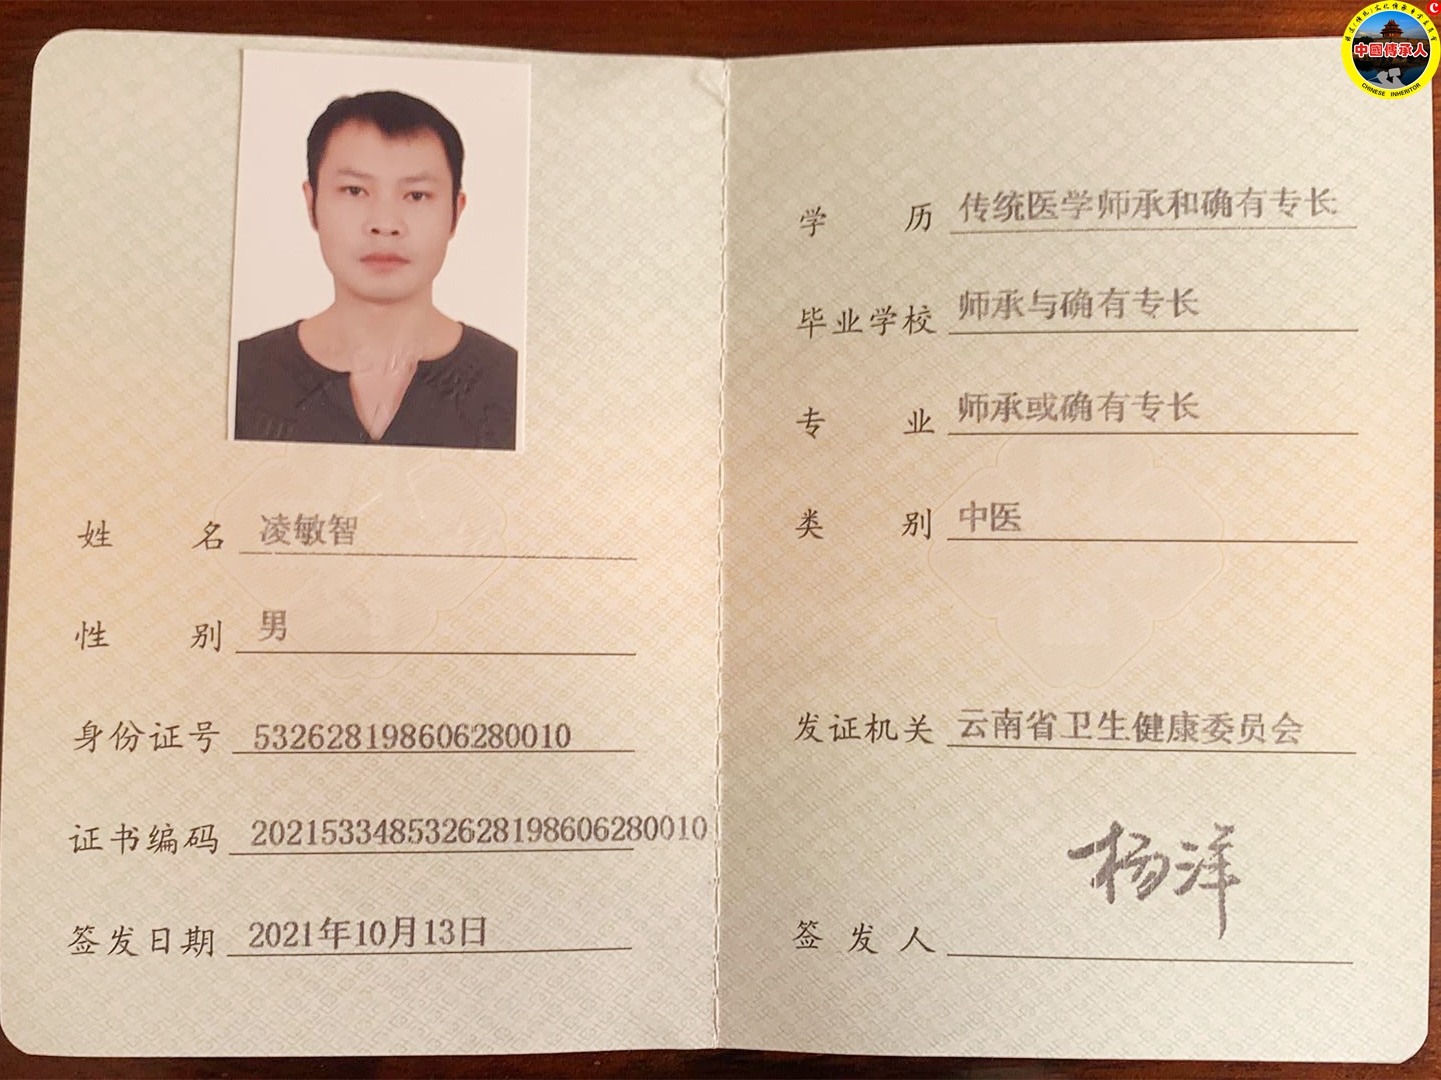 中國傳承人
CHINESE INHERITOR
姓名 凌敏智
性别 男
身份证号 532628198606280010
证书编码 202153348532628198606280010
签发日期 2021年10月13日
学历 传统医学师承和确有专长
毕业学校 师承与确有专长
专业 师承或确有专长
类别 中医
发证机关 云南省卫生健康委员会
签发人 杨洋